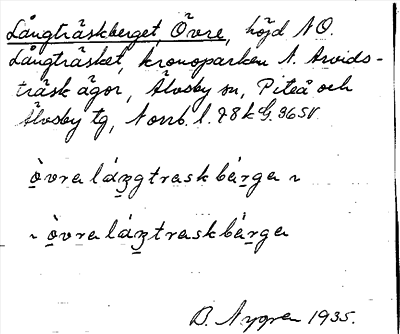 Långträskberget, Övre, höjd NO.
Långträsket, kronoparken N. Arvids-
träsk ägor, Älvsby sn, Piteå och
Älvsby tg, Norrb. l. 78k G. 36SV
òvra láŋgtraskbärga ~
~ òvra láŋtraskbärga
B. Nygren 1935.